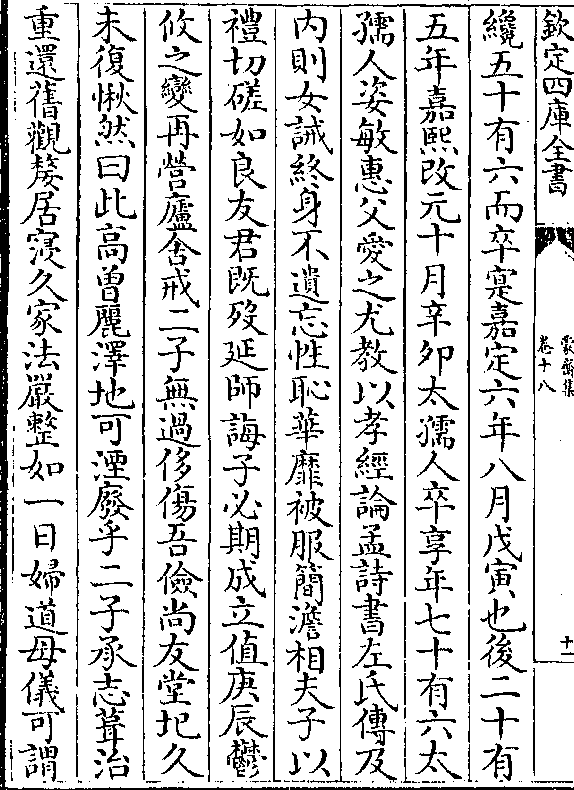 欽定四庫全書
蒙齋集
卷十八
十一
纔五十有六而卒寔嘉定六年八月戊寅也後二十有
五年嘉熙改元十月辛卯太孺人卒享年七十有六太
孺人姿敏惠父愛之尤教以孝經論孟詩書左氏傳及
内則女誡終身不遺忘性恥華靡被服簡澹相夫子以
禮切磋如良友君既歿延師誨子必期成立值庚辰鬱
攸之變再營廬舍戒二子無過侈傷吾儉尚友堂圯久
未復愀然曰此高曽麗澤地可湮廢乎二子承志葺治
重還舊觀嫠居寖久家法嚴整如一日婦道母儀可謂